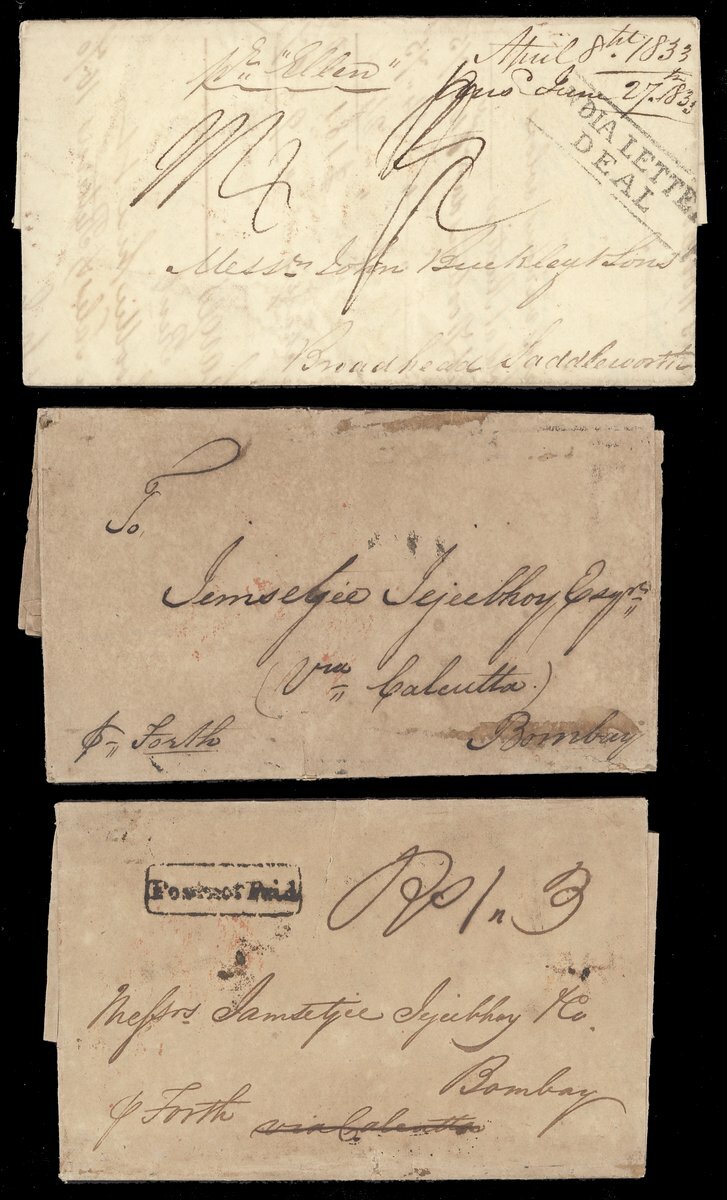 pr "Ellen"
April 8th 1833
June 27th 1833
INDIA LETTER
DEAL
Messrs John Buckley & Sons
Broadhead Saddleworth
To,
Jemsetjee Jejeebhoy Esqre
(Via Calcutta.)
pr Forth
Bombay
Post not Paid
Rs 1 " 3
Messrs Jamsetjee Jejeebhoy & Co.
Bombay
p Forth via Calcutta